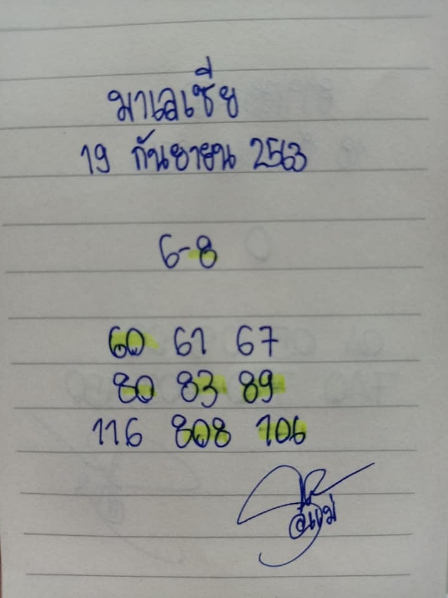 มาเลเซีย
19 กันยายน 2563
6-8
60 61 67
80 83 89
116 808 106